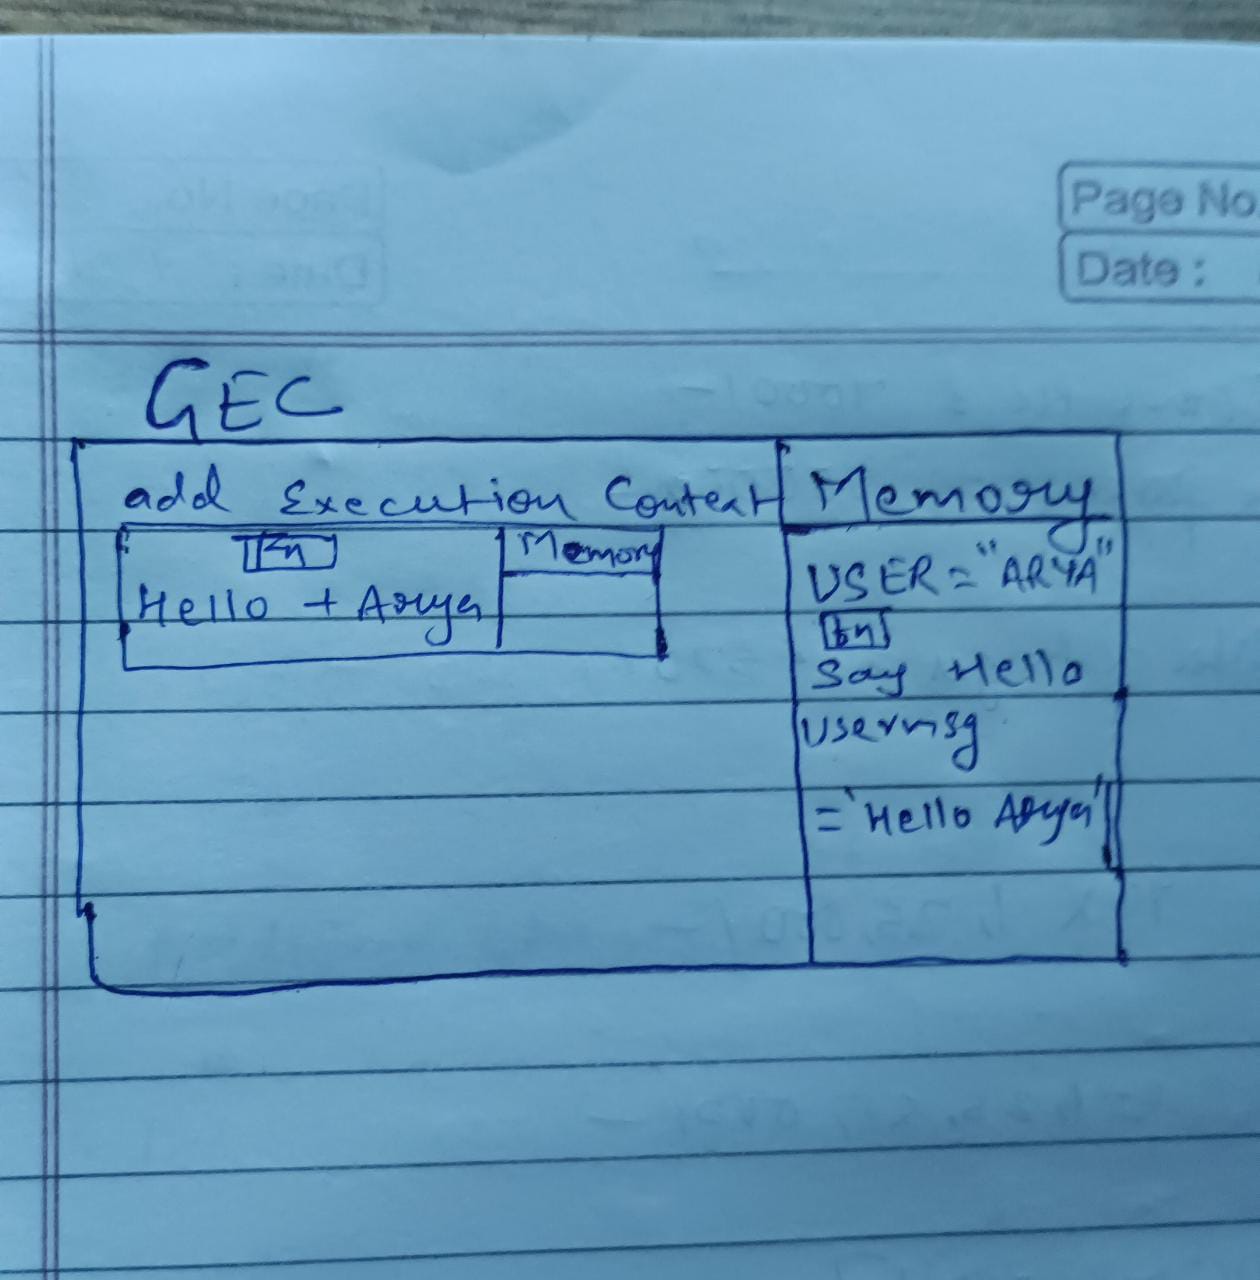 Page No
Date :
GEC
add Execution Context
Memory
Fn
Memory
Hello + Arya
USER = "ARYA"
fn
Say Hello
usermsg
= 'Hello Arya'